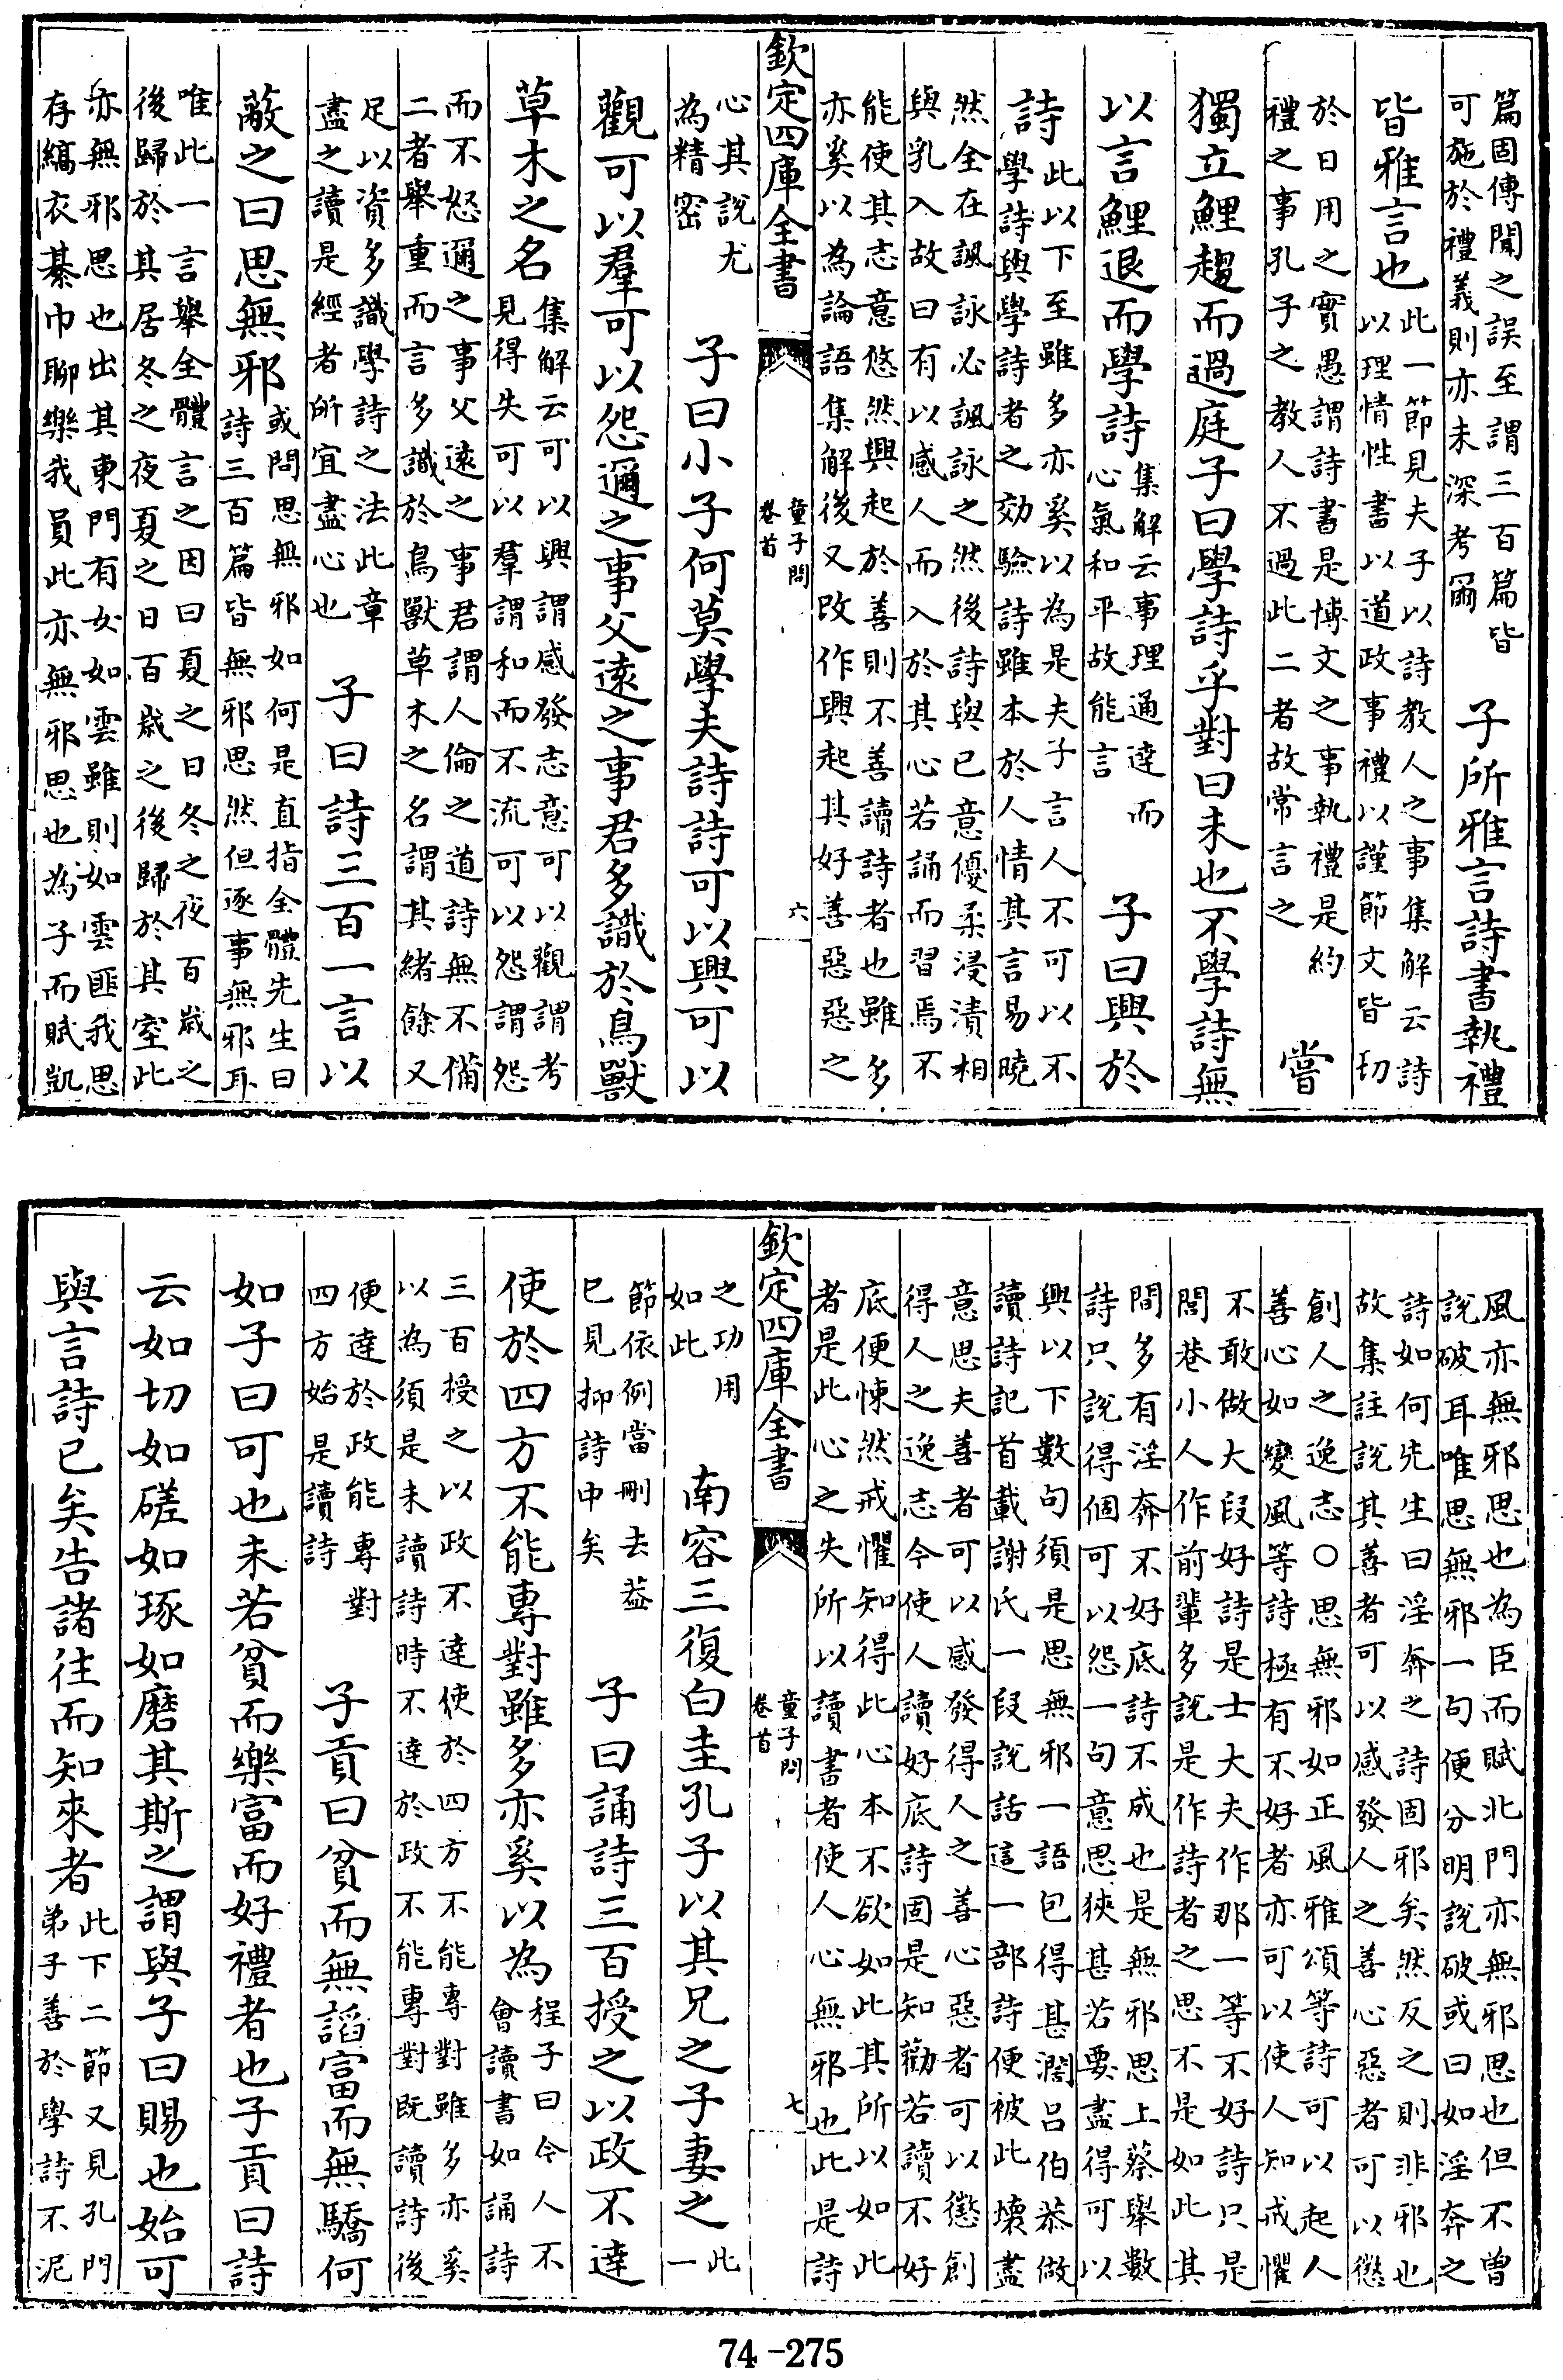 篇固傳聞之誤至謂三百篇皆
可施於禮義則亦未深考爾
子所雅言詩書執禮
皆雅言也
此一節見夫子以詩教人之事集解云詩
以理情性書以道政事禮以謹節文皆切
於日用之實愚謂詩書是博文之事執禮是約
禮之事孔子之教人不過此二者故常言之
嘗
獨立鯉趨而過庭子曰學詩乎對曰未也不學詩無
以言鯉退而學詩
集解云事理通達而
心氣和平故能言
子曰興於
詩
此以下至雖多亦奚以為是夫子言人不可以不
學詩與學詩者之効驗詩雖本於人情其言易曉
然全在諷詠必諷詠之然後詩與已意優柔浸漬相
與乳入故曰有以感人而入於其心若誦而習焉不
能使其志意悠然興起於善則不善讀詩者也雖多
亦奚以為論語集解後又改作興起其好善惡惡之
欽定四庫全書
童子問
卷首
六
心其說尤
為精密
子曰小子何莫學夫詩詩可以興可以
觀可以羣可以怨邇之事父遠之事君多識於鳥獸
草木之名
集解云可以興謂感發志意可以觀謂考
見得失可以羣謂和而不流可以怨謂怨
而不怒邇之事父遠之事君謂人倫之道詩無不備
二者舉重而言多識於鳥獸草木之名謂其緒餘又
足以資多識學詩之法此章
盡之讀是經者所宜盡心也
子曰詩三百一言以
蔽之曰思無邪
或問思無邪如何是直指全體先生曰
詩三百篇皆無邪思然但逐事無邪耳
唯此一言舉全體言之因曰夏之日冬之夜百歲之
後歸於其居冬之夜夏之日百歲之後歸於其室此
亦無邪思也出其東門有女如雲雖則如雲匪我思
存縞衣綦巾聊樂我員此亦無邪思也為子而賦凱
風亦無邪思也為臣而賦北門亦無邪思也但不曾
說破耳唯思無邪一句便分明說破或曰如淫奔之
詩如何先生曰淫奔之詩固邪矣然反之則非邪也
故集註說其善者可以感發人之善心惡者可以懲
創人之逸志○思無邪如正風雅頌等詩可以起人
善心如變風等詩極有不好者亦可以使人知戒懼
不敢做大段好詩是士大夫作那一等不好詩只是
閭巷小人作前輩多說是作詩者之思不是如此其
間多有淫奔不好底詩不成也是無邪思上蔡舉數
詩只說得個可以怨一句意思狹甚若要盡得可以
興以下數句須是思無邪一語包得甚濶呂伯恭做
讀詩記首載謝氏一段說話這一部詩便被此壞盡
意思夫善者可以感發得人之善心惡者可以懲創
得人之逸志今使人讀好底詩固是知勸若讀不好
底便悚然戒懼知得此心本不欲如此其所以如此
者是此心之失所以讀書者使人心無邪也此是詩
欽定四庫全書
童子問
卷首
七
之功用
如此
南容三復白圭孔子以其兄之子妻之
此一
節依例當刪去葢
已見抑詩中矣
子曰誦詩三百授之以政不達
使於四方不能專對雖多亦奚以為
程子曰今人不
會讀書如誦詩
三百授之以政不達使於四方不能專對雖多亦奚
以為須是未讀詩時不達於政不能專對既讀詩後
便達於政能專對
四方始是讀詩
子貢曰貧而無諂富而無驕何
如子曰可也未若貧而樂富而好禮者也子貢曰詩
云如切如磋如琢如磨其斯之謂與子曰賜也始可
與言詩已矣告諸往而知來者
此下二節又見孔門
弟子善於學詩不泥
74-275